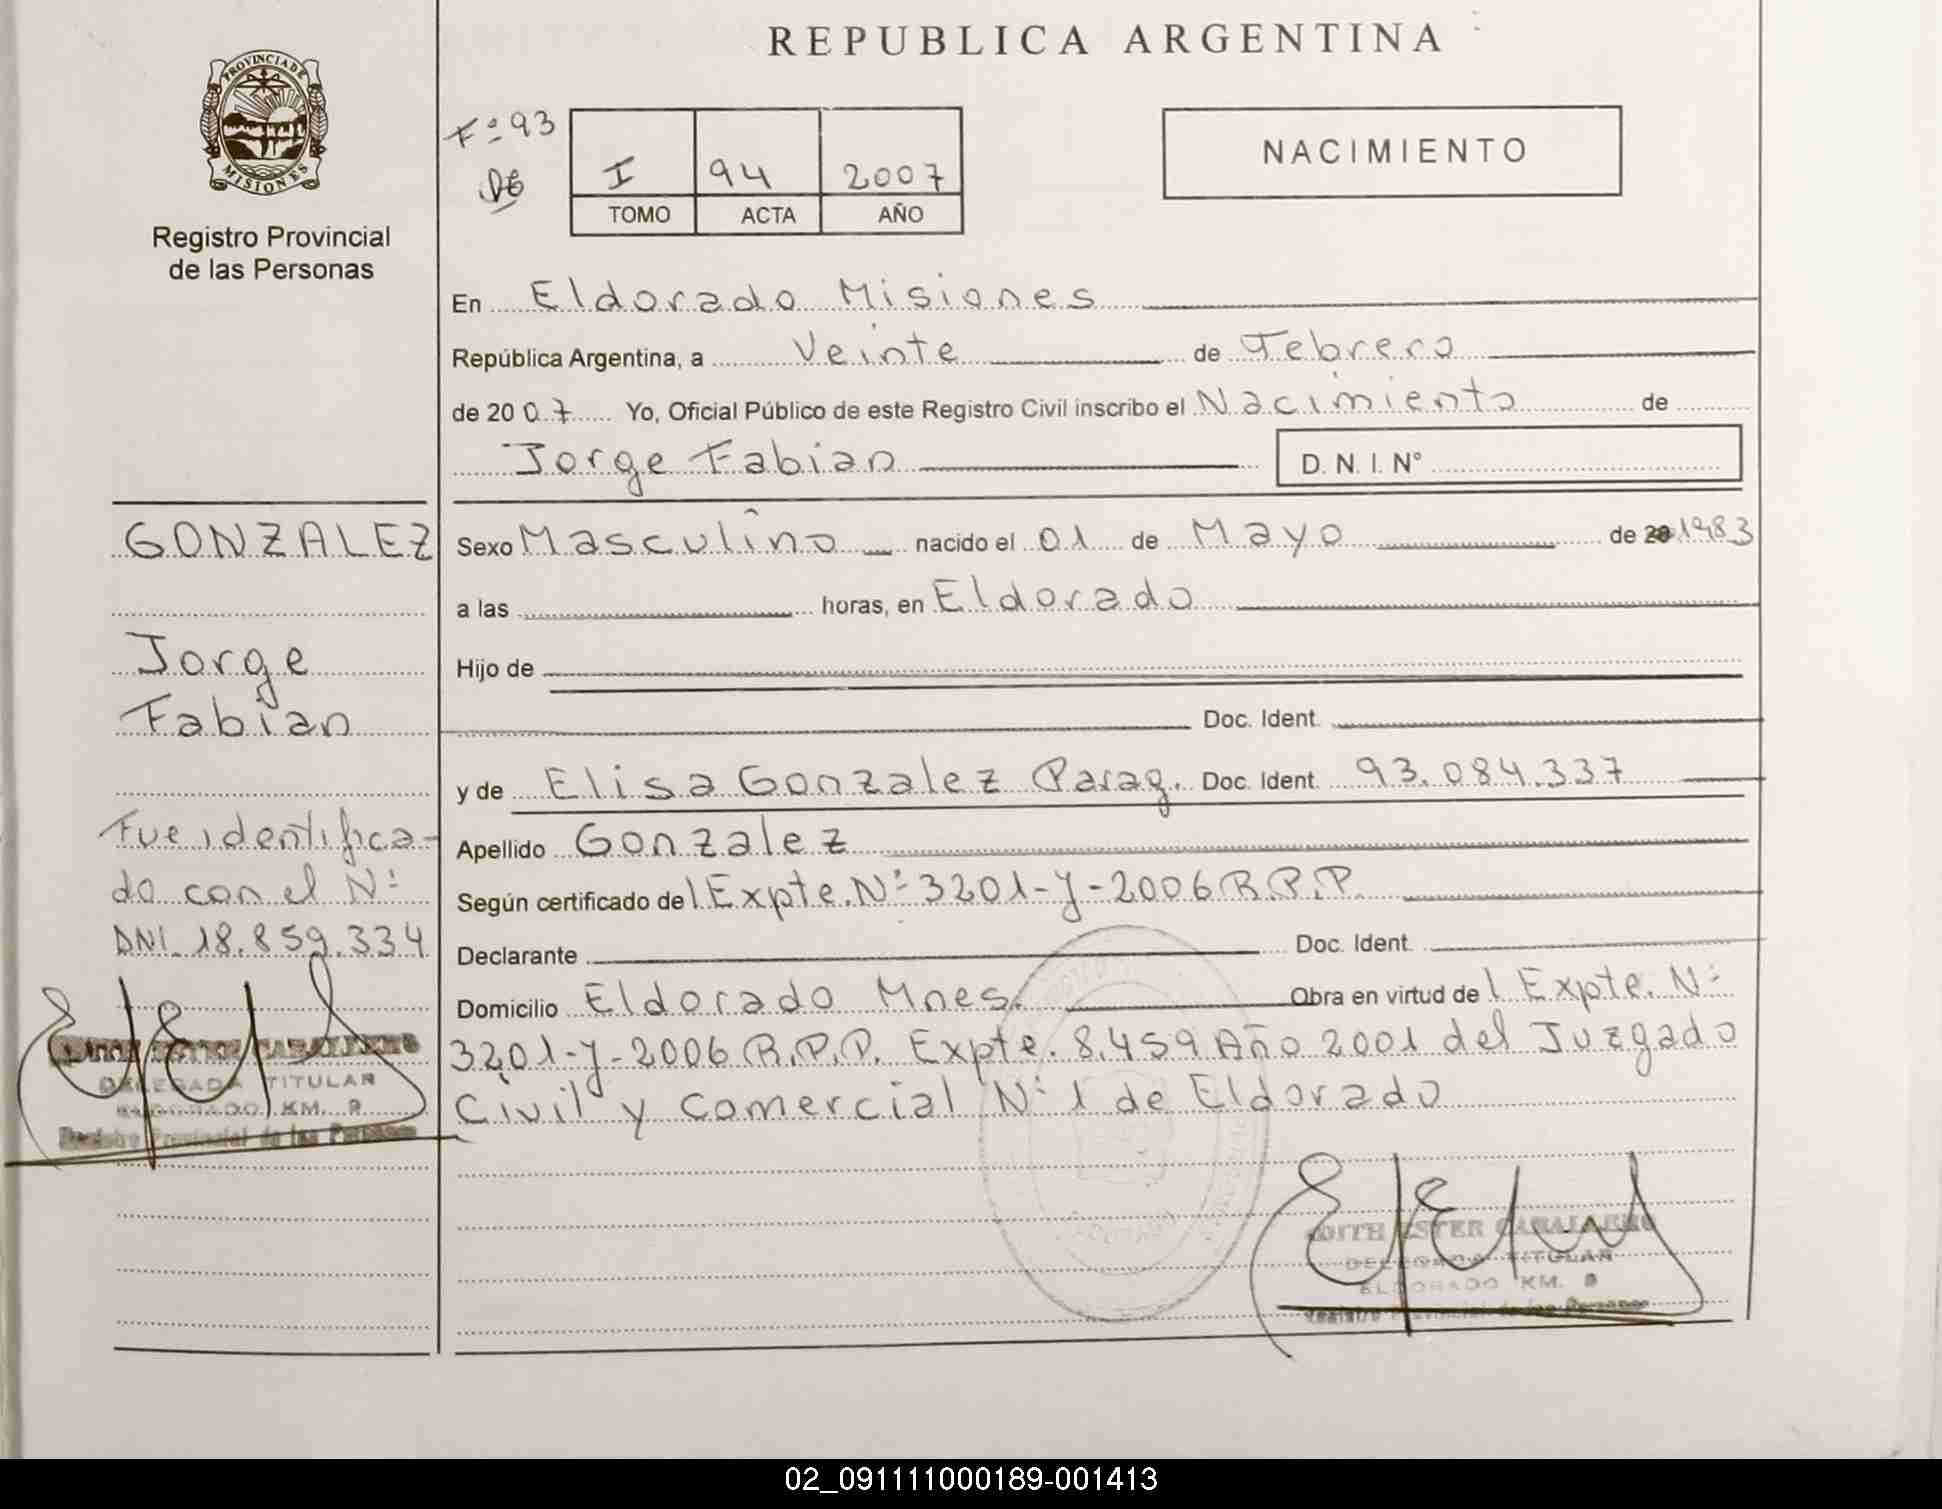 REPUBLICA ARGENTINA
PROVINCIA DE
MISIONES
Registro Provincial
de las Personas
Fº 93
I 94 2007
TOMO ACTA AÑO
NACIMIENTO
En Eldorado Misiones
República Argentina, a Veinte de Febrero
de 2007 Yo, Oficial Público de este Registro Civil inscribo el Nacimiento de
Jorge Fabian D. N. I. Nº
GONZALEZ
Jorge
Fabian
Fue identifica-
do con el Nº
DNI 18.859.334
DELEGADA TITULAR
ELDORADO KM. 9
Registro Provincial de las Personas
Sexo Masculino nacido el 01 de Mayo de 1983
a las horas, en Eldorado
Hijo de
Doc. Ident.
y de Elisa Gonzalez Parag. Doc. Ident. 93.084.337
Apellido Gonzalez
Según certificado del Expte. Nº 3201-Y-2006 R.P.P.
Declarante Doc. Ident.
Domicilio Eldorado Mnes. Obra en virtud del Expte. Nº
3201-Y-2006 R.P.P. Expte. 8.459 Año 2001 del Juzgado
Civil y Comercial Nº 1 de Eldorado
EDITH ESTER CABALLERO
DELEGADA TITULAR
ELDORADO KM. 9
Registro Provincial de las Personas
02_091111000189-001413